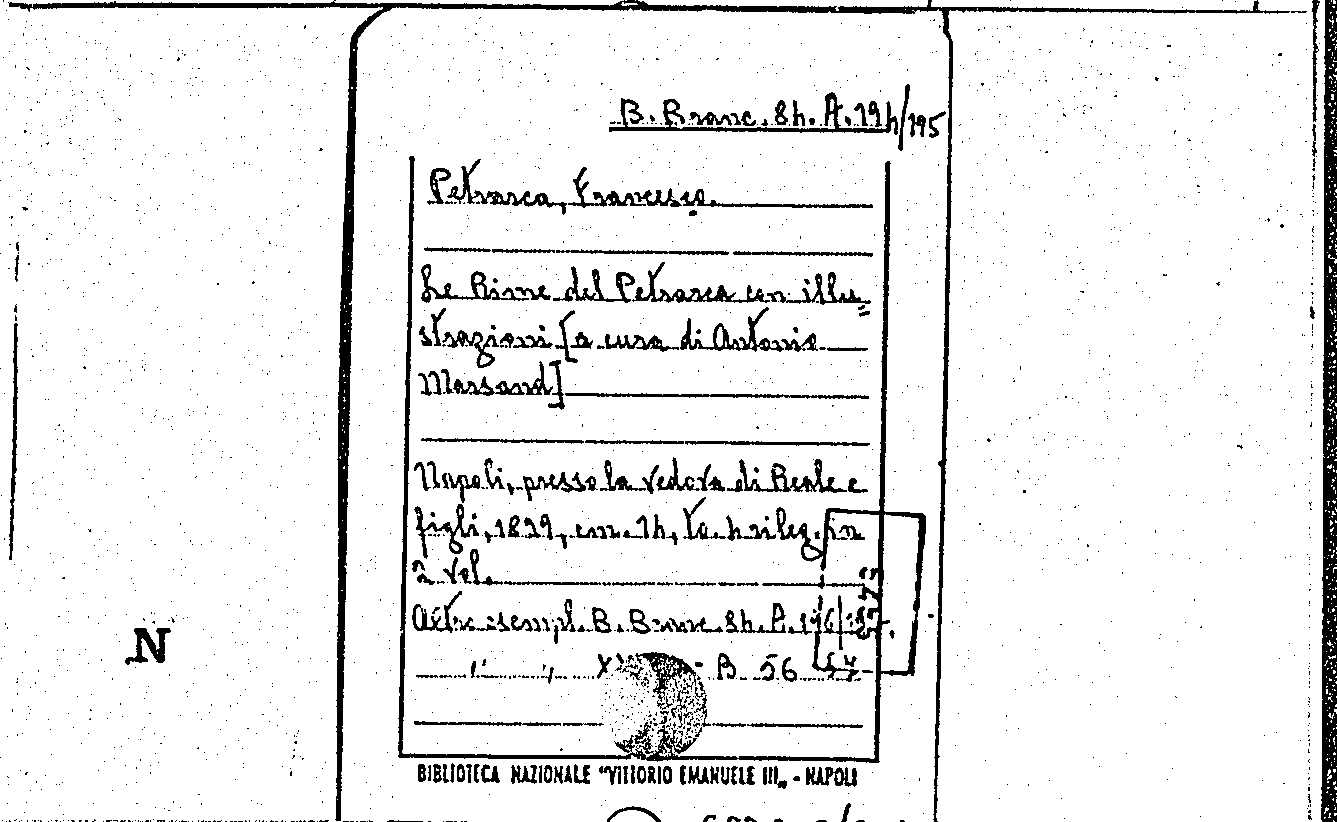 B. Branc. 8h. A. 194/195
Petrarca, Francesco.
Le Rime del Petrarca con illu=
strazioni [a cura di Antonio
Marsand]
Napoli, presso la vedova di Reale e
figli, 1829, cm. 14, in
2 vol.
Altro esempl. B. Branc. 8h. A. 196
" " B 56
N
BIBLIOTECA NAZIONALE "VITTORIO EMANUELE III" - NAPOLI